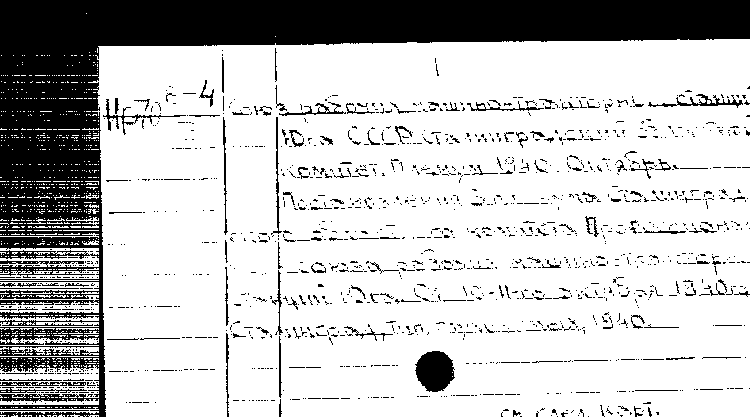 Нр70 8-4
Союз рабочих машинно-тракторных станций
Юга СССР. Сталинградский областной
комитет. Пленум 1940. Октябрь.
Постановления пленума Сталинград
ского областного комитета Профессиональ
союза рабочих машинно-трактор
станций Юга. От 10-11-го октября 1940г.
Сталинград, тип. 1940.
см. след. карт.